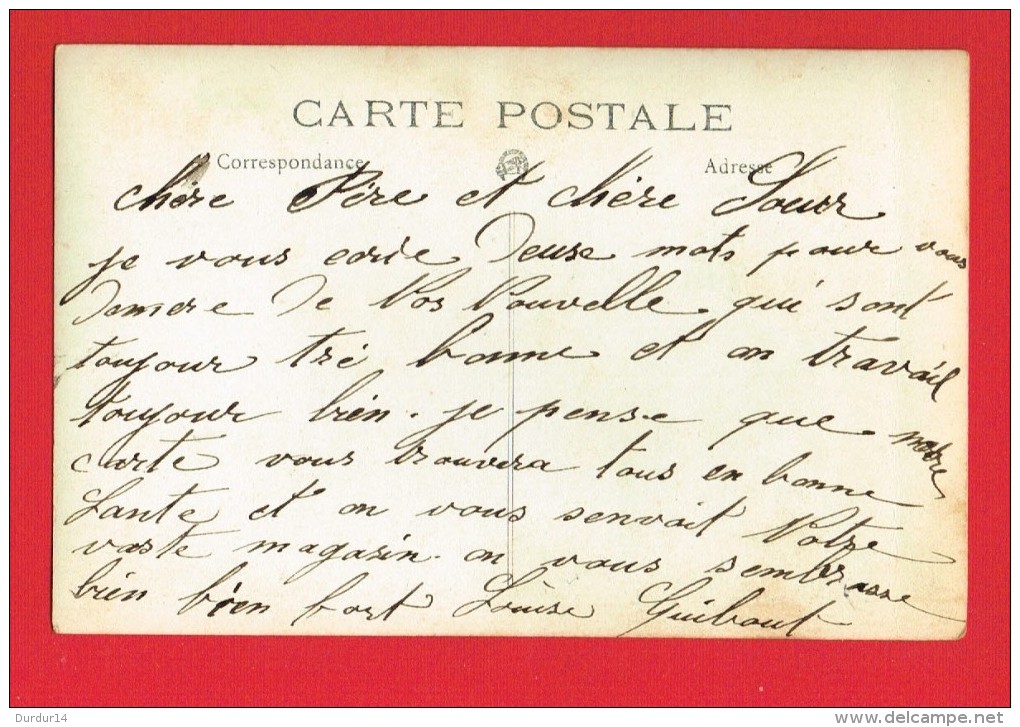 CARTE POSTALE
Correspondance Adresse
chère Père et chère Soeur
je vous ecrie deuse mots pour vous
donnere de Nos Nouvelle qui sont
toujour tré bonne et on travail
toujour bien. je pense que notre
carte vous trouvera tous en bonne
Sante et on vous senvoit Notre
vaste magasin. on vous sembrasse
bien bien fort Louise Guibout
Durdur14
www.delcampe.net